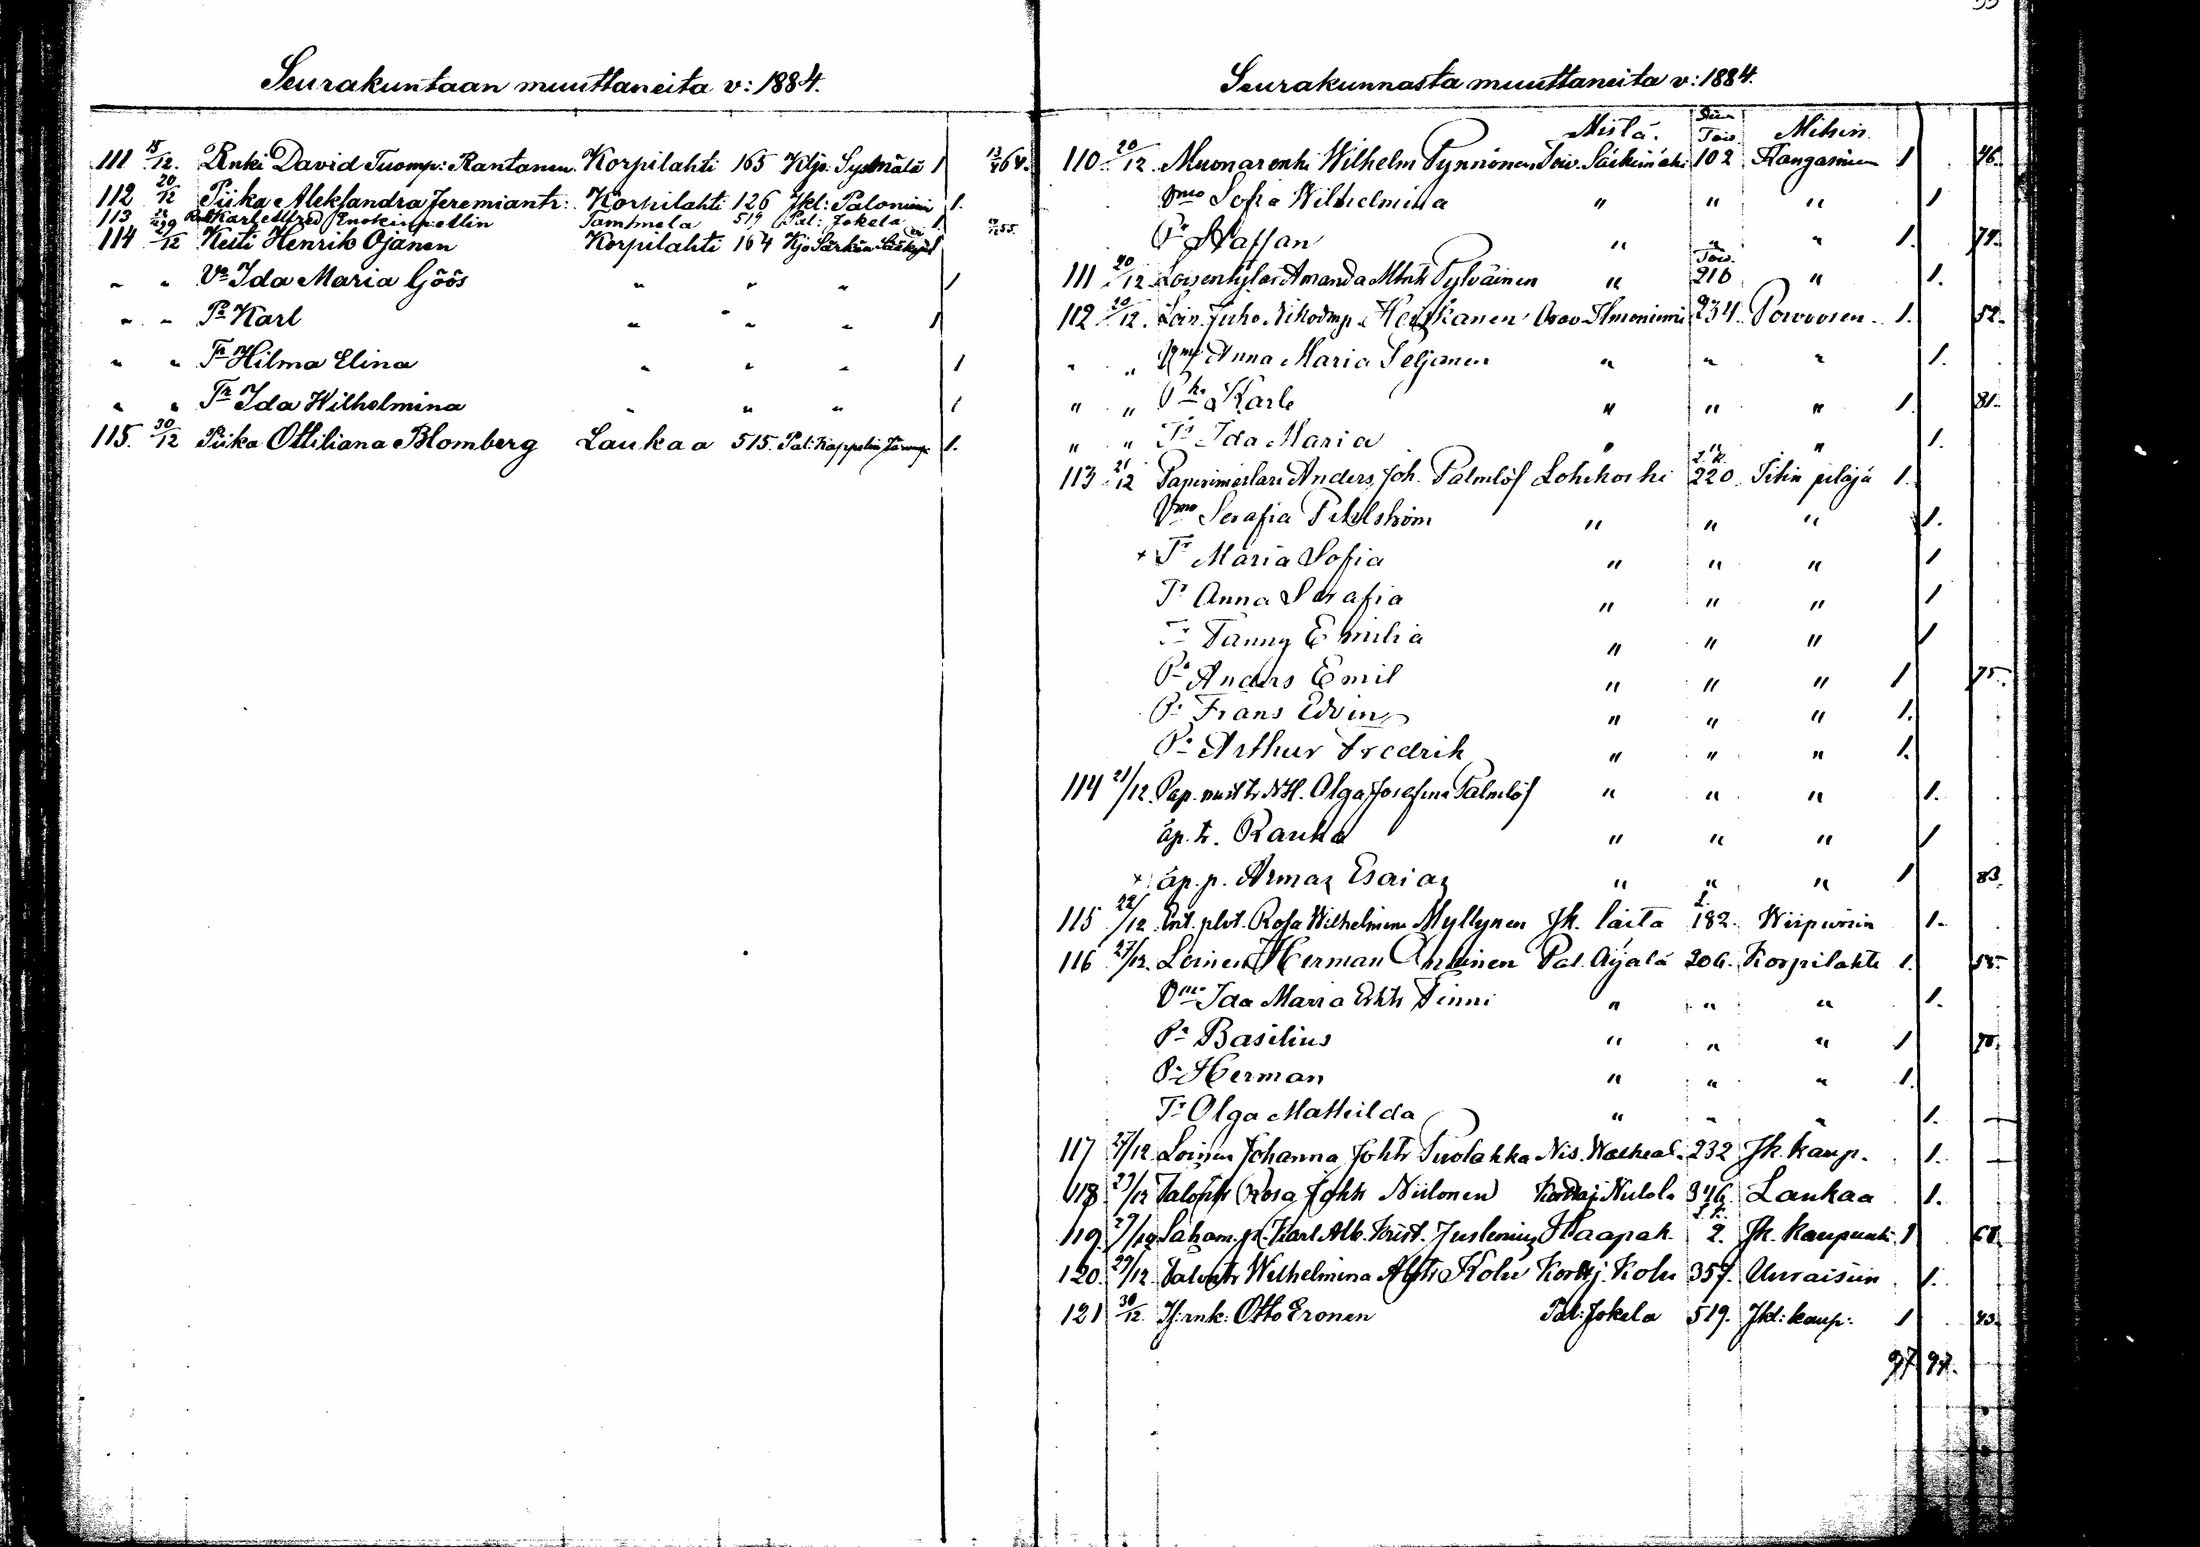 Seurakuntaan muuttaneita v: 1884.
111 15/12. Rnki David Tuomp: Rantanen Korpilahti 165 Kljo: 1 13/4 64.
112 20/12 Piika Aleksandra Jeremiantr: Korpilahti 126 Jkl: Paloniemi 1.
113 Karl Alfred Enokinp: Alin Tammela 519 Pal: Jokela 1. 55.
114 29/12 Keiti Henrik Ojanen Korpilahti 164 Kjo Särkün 1
" " Vo Ida Maria Göös " " " 1
" " Pa Karl " " " 1
" " Tr Hilma Elina " " " 1
" " Tr Ida Wilhelmina " " " 1
115. 30/12 Piika Ottiliana Blomberg Laukaa 515. Pal: Kappelin 1.
Seurakunnasta muuttaneita v: 1884.
Mistä. Siv. Mihin.
Toiv.
110 20/12. Muonarenki Wilhelm Pynnönen Toiv. 102 Kangasmin 1 46.
Vmo Sofia Wilhelmina " " " 1
Pa Staffan " " " 1. 74.
Toiv.
111 20/12 Amanda Mtntr Pylväinen " 216 " 1.
112 20/12. Loin. Juho Nikodmp. Heiskanen Orav. 234. Porvoosen. 1. 52.
" " Vmo Anna Maria Seljanen " " " 1.
" " Pka Karle " " " 1. 81.
" " Tr Ida Maria " " " 1.
J.K.
113 21/12 Paperimestari Anders Joh. Palmlöf Lohikoski 220. Pitäjä 1.
Vmo Serafia " " " 1.
+ Tr Maria Sofia " " " 1
Tr Anna Serafia " " " 1
Tr Fanny Emilia " " " 1
Pa Anders Emil " " " 1 75.
Pa Frans Edvin " " " 1.
Pa Arthur Fredrik " " " 1.
114 21/12. Pap. mest tr N:H. Olga Josefina Palmlöf " " " 1.
äp. tr. Rauha " " " 1
+ äp. p. Armas Esaias " " " 1 83.
115 22/12 Rosa Wilhelmina Myllynen Jk. laita 182. Wiipuriin 1.
116 27/12. Loinen Herman Pal. Äijälä 206. Korpilahti 1. 55.
Vmo Ida Maria Erktr Finni " " " 1.
Pa Basilius " " " 1 78.
Pa Herman " " " 1.
Tr Olga Mathilda " " " 1.
117 27/12 Loinen Johanna Johtr Puolakka Nis. 232 Jk. kaup. 1.
118 27/12 Talontr Rosa Johtr Niilonen Nulola 346. Laukaa 1.
119. 29/12 Saham. p. Karl Alb. Krist. Juslenius Haapak. 2. Jk. kaupunki. 1 68.
120. 29/12. Talontr Wilhelmina Abrtr Kolu Kortj. Kolu 357. Uuraisiin 1.
121 30/12. Jt: rnk: Otto Eronen Pal: Jokela 519. Jkl: kaup: 1 43.
97 97.